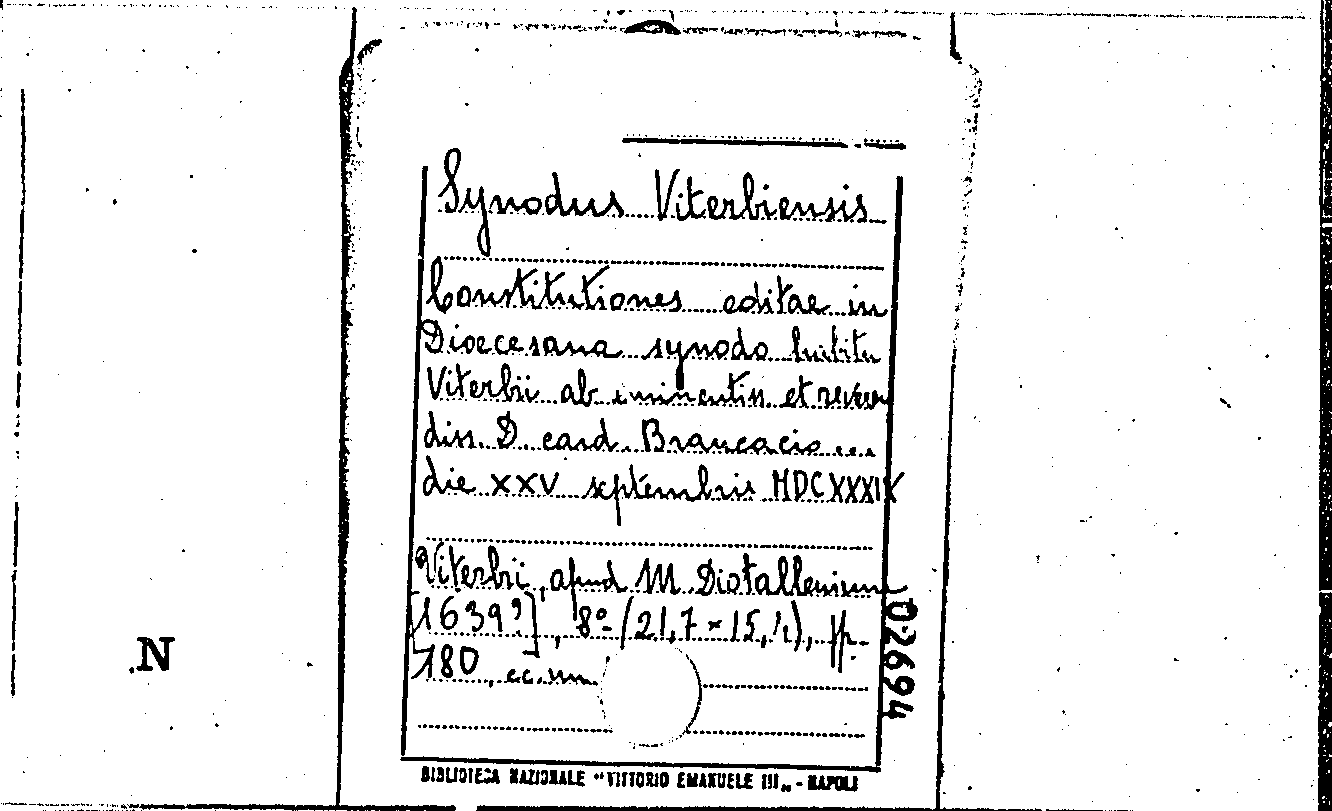 Synodus Viterbiensis
Constitutiones editae in
Dioecesana synodo habita
Viterbii ab eminentiss. et reveren
diss. D. card. Brancacio ...
die XXV septembris MDCXXXIX
Viterbii, apud M. Diotallenium
[1639?], 8º (21,7 × 15, ), pp.
180, cc. nn.
02694
N
BIBLIOTECA NAZIONALE "VITTORIO EMANUELE III„ - NAPOLI